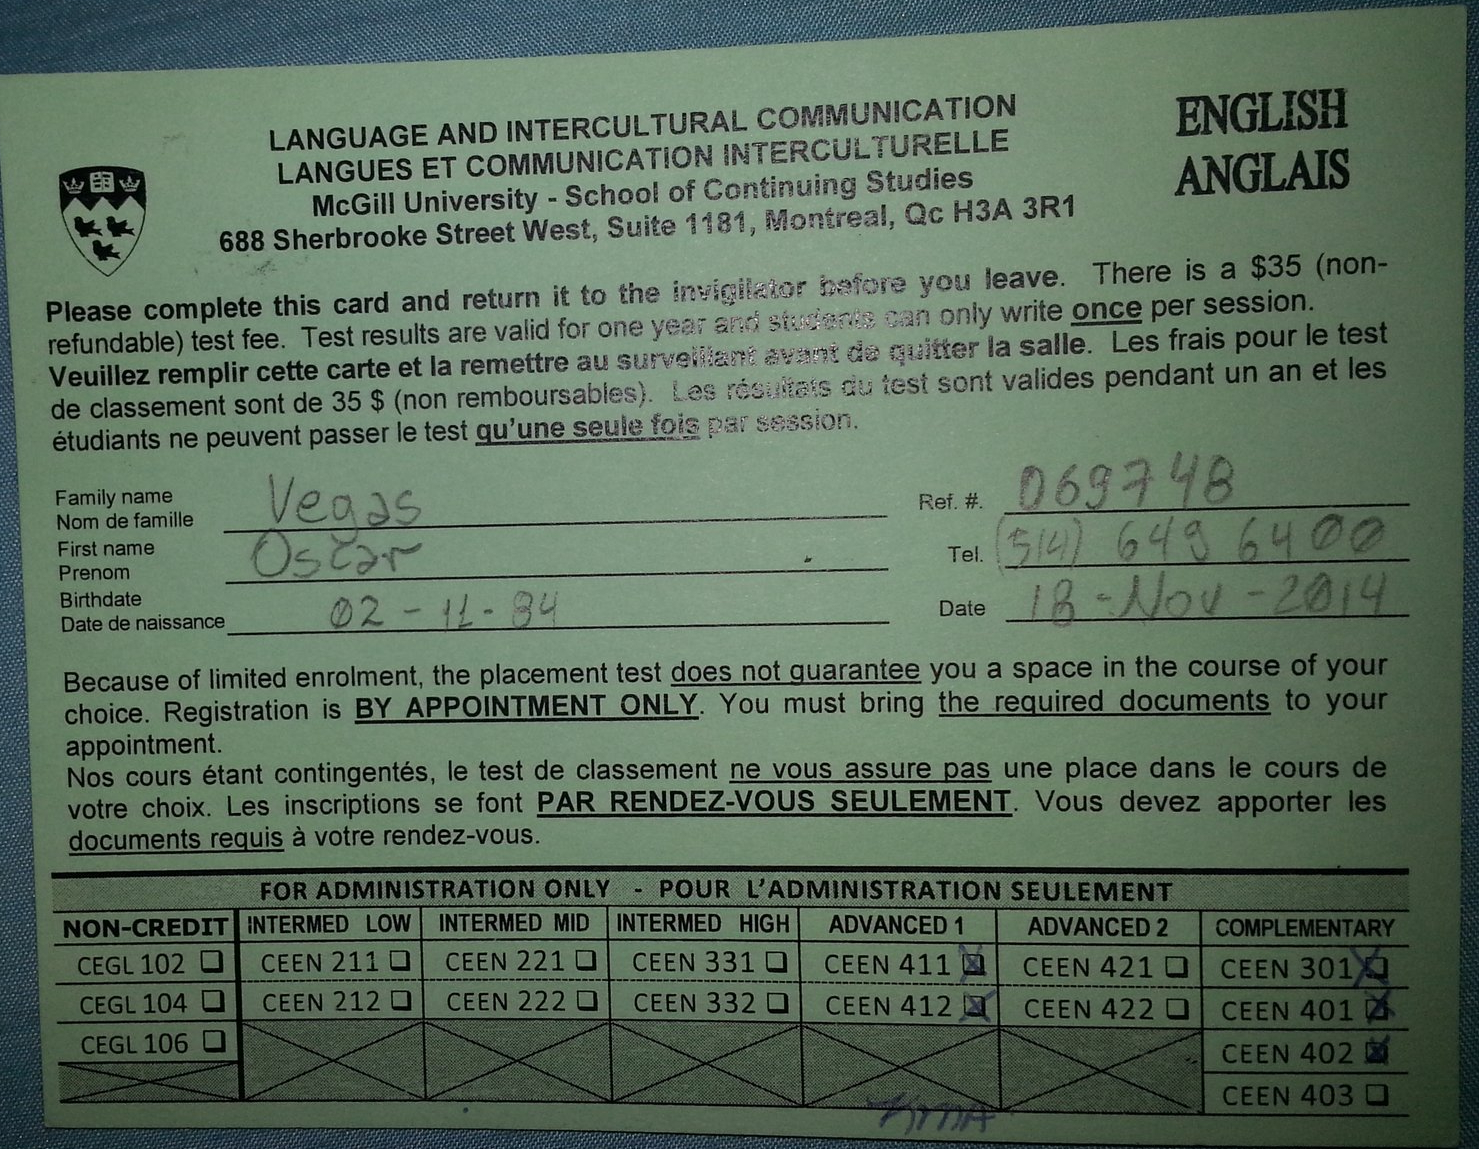 LANGUAGE AND INTERCULTURAL COMMUNICATION
LANGUES ET COMMUNICATION INTERCULTURELLE
McGill University - School of Continuing Studies
688 Sherbrooke Street West, Suite 1181, Montreal, Qc H3A 3R1
ENGLISH
ANGLAIS
Please complete this card and return it to the invigilator before you leave. There is a $35 (non-
refundable) test fee. Test results are valid for one year and students can only write once per session.
Veuillez remplir cette carte et la remettre au surveillant avant de quitter la salle. Les frais pour le test
de classement sont de 35 $ (non remboursables). Les résultats du test sont valides pendant un an et les
étudiants ne peuvent passer le test qu'une seule fois par session.
Family name
Nom de famille
Vegas
Ref. #.
069748
First name
Prenom
Oscar
Tel.
(514) 649 6400
Birthdate
Date de naissance
02 - 11 - 84
Date
18 - Nov - 2014
Because of limited enrolment, the placement test does not guarantee you a space in the course of your
choice. Registration is BY APPOINTMENT ONLY. You must bring the required documents to your
appointment.
Nos cours étant contingentés, le test de classement ne vous assure pas une place dans le cours de
votre choix. Les inscriptions se font PAR RENDEZ-VOUS SEULEMENT. Vous devez apporter les
documents requis à votre rendez-vous.
FOR ADMINISTRATION ONLY - POUR L'ADMINISTRATION SEULEMENT
NON-CREDIT INTERMED LOW INTERMED MID INTERMED HIGH ADVANCED 1 ADVANCED 2 COMPLEMENTARY
CEGL 102 CEEN 211 CEEN 221 CEEN 331 CEEN 411 CEEN 421 CEEN 301
CEGL 104 CEEN 212 CEEN 222 CEEN 332 CEEN 412 CEEN 422 CEEN 401
CEGL 106 CEEN 402
CEEN 403